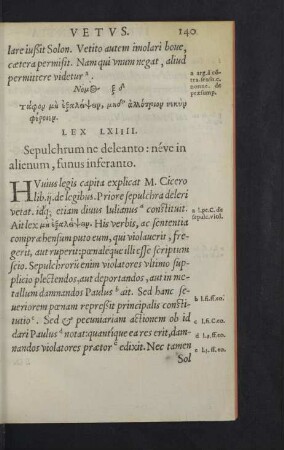 VETVS. 140
lare iussit Solon. Vetito autem imolari boue,
cætera permisit. Nam qui vnum negat, aliud
permittere videtur ª.
a arg. l. cũ
præsump.
Νομ⊕ ξδ
τάφον μὴ ἐξαλείφων, μηδ' ἀλλότριον νεκὺν
φέρειν.
LEX LXIIII.
Sepulchrum ne deleanto: néve in
alienum, funus inferanto.
HVuius legis capita explicat M. Cicero
lib. ij. de legibus. Priore sepulchra deleri
vetat. idq; etiam diuus Iulianus ª constituit.
a l. pe. C. de
sepulc. viol.
Ait lex μὴ ἐξαλείφων. His verbis, ac sententia
compræhensum puto eum, qui violauerit, fre-
gerit, aut ruperit: pœnaleque illi esse scriptum
scio. Sepulchrorũ enim violatores vltimo sup-
plicio plectendos, aut deportandos, aut in me-
tallum damnandos Paulus ᵇ ait. Sed hanc se-
b l. fi. ff. eo.
ueriorem pœnam repressit principalis consti-
tutio ᶜ. Sed & pecuniariam actionem ob id
c l. fi. C. eo.
dari Paulus ᵈ notat: quantique ea res erit, dam-
d l. 9. ff. eo.
nandos violatores prætor ᵉ edixit. Nec tamen
e l. 3. ff. eo.
Sol